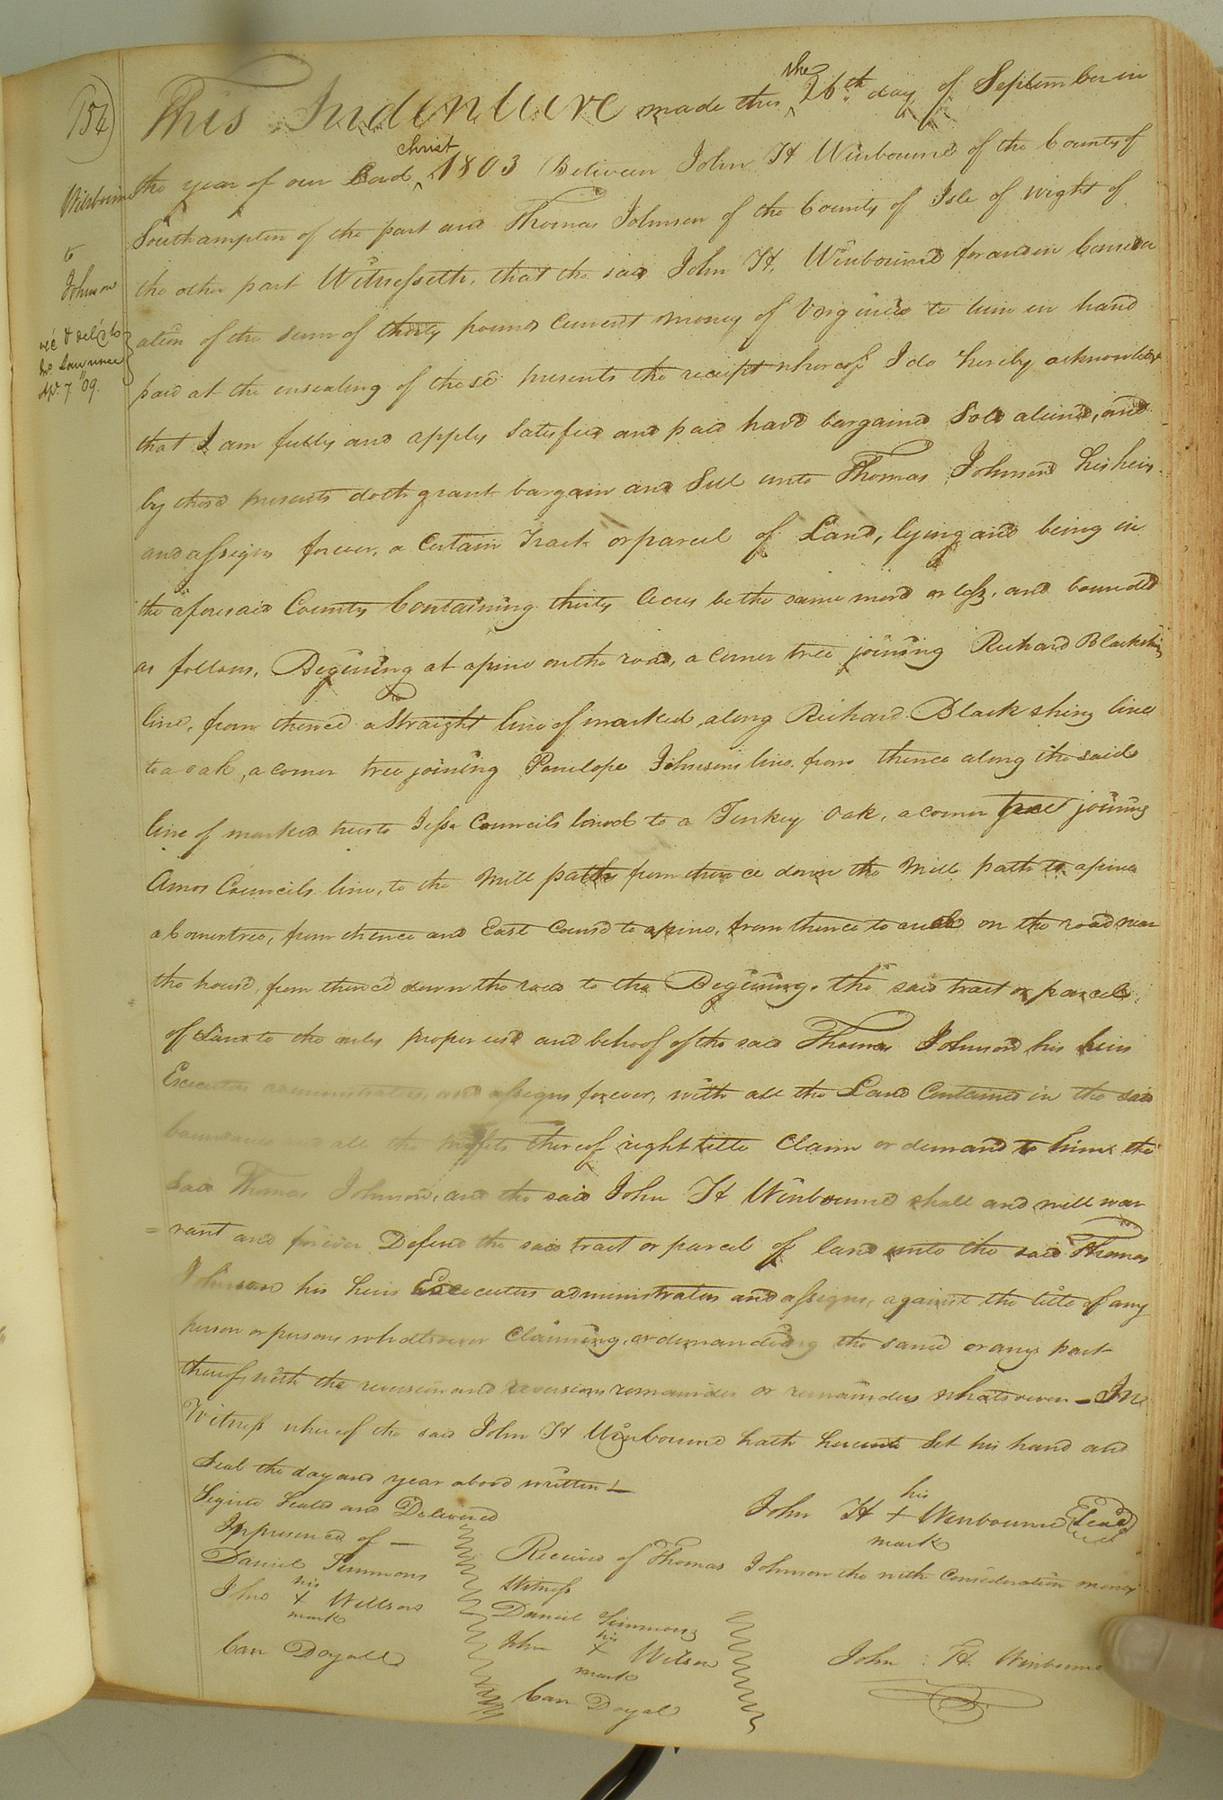 154
the
This Indenture made this 26th day of September in
Christ
the year of our Lord 1803 Between John H Winbourne of the County of
Winbourne
to
Johnson
Southampton of the part and Thomas Johnson of the County of Isle of wight of
the other part Witnesseth, that the said John H. Winbourne for and in Conside
ation of the sum of thirty pounds Current money of Virginia to him in hand
Lawrence
Ap. 7 09.
paid at the ensealing of these presents the receipt whereof I do hereby acknowledge
that I am fully and apply satisfied and paid have bargaind Sold aliend, and
by these presents doth grant bargain and Sell unto Thomas Johnson his heirs
and assigns forever, a Certain Tract or parcel of Land, lying and being in
the aforesaid County Containing thirty Acres be the same more or less, and bounded
as follows, Begining at a pine on the road, a corner tree joining Richard Blackshins
line, from thence a Straight line of marked along Richard Blackshins line
to a oak, a corner tree joining Penelope Johnsons line from thence along the said
line of marked trees to Jesse Councils line to a Turkey oak, a corner tree joining
Amos Councils line, to the Mill path from thence down the Mill path to a pine
a Corner tree, from thence and East Course to a pine, from thence to on the road near
the house, from thence down the road to the Begining, the said tract or parcel
of Land to the only proper use and behoof of the said Thomas Johnson his heirs
Executors administrators, and assigns forever, with all the Land Contained in the said
boundaries and all the profits thereof right title Claim or demand to him the
said Thomas Johnson, and the said John H Winbourne shall and will war
= rant and forever Defend the said tract or parcel of land unto the said Thomas
Johnson his heirs Executors administrators and assigns, against the title of any
person or persons whatsoever Claiming, or demanding the same or any part
thereof, with the reversion and reversions remainder or remainders whatsoever - In
Witness whereof the said John H Winbourne hath hereunto Set his hand and
Seal the day and year above written
Signed Sealed and Delivered
In presence of —
his
John H + Winbourne Seal
mark
Daniel Simmons
his
Jno + Willson
mark
Car Doyall
Received of Thomas Johnson the with Consideration money
Witness
Daniel Simmons
his
John + Wilson
mark
Car Doyal
John H. Winbourne